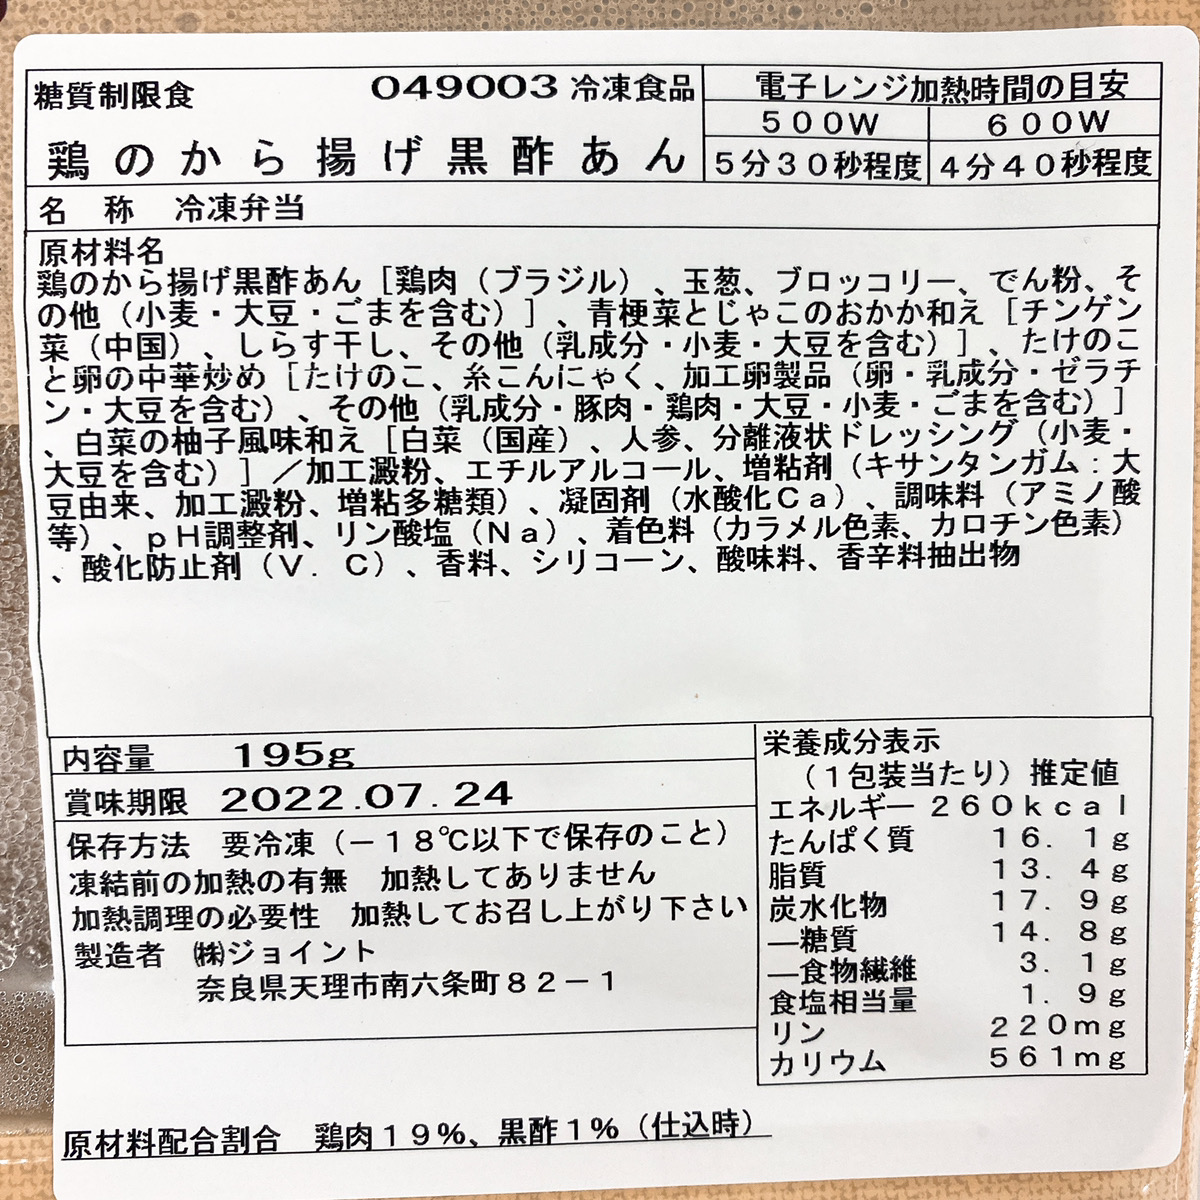 糖質制限食 049003 冷凍食品
鶏のから揚げ黒酢あん
電子レンジ加熱時間の目安
500W 600W
5分30秒程度 4分40秒程度
名 称 冷凍弁当
原材料名
鶏のから揚げ黒酢あん［鶏肉（ブラジル）、玉葱、ブロッコリー、でん粉、そ
の他（小麦・大豆・ごまを含む）］、青梗菜とじゃこのおかか和え［チンゲン
菜（中国）、しらす干し、その他（乳成分・小麦・大豆を含む）］、たけのこ
と卵の中華炒め［たけのこ、糸こんにゃく、加工卵製品（卵・乳成分・ゼラチ
ン・大豆を含む）、その他（乳成分・豚肉・鶏肉・大豆・小麦・ごまを含む）］
、白菜の柚子風味和え［白菜（国産）、人参、分離液状ドレッシング（小麦・
大豆を含む）］／加工澱粉、エチルアルコール、増粘剤（キサンタンガム：大
豆由来、加工澱粉、増粘多糖類）、凝固剤（水酸化Ｃａ）、調味料（アミノ酸
等）、ｐＨ調整剤、リン酸塩（Ｎａ）、着色料（カラメル色素、カロチン色素）
、酸化防止剤（Ｖ．Ｃ）、香料、シリコーン、酸味料、香辛料抽出物
内容量 195g
賞味期限 2022.07.24
保存方法 要冷凍（－１８℃以下で保存のこと）
凍結前の加熱の有無 加熱してありません
加熱調理の必要性 加熱してお召し上がり下さい
製造者 ㈱ジョイント
奈良県天理市南六条町８２－１
栄養成分表示
（１包装当たり）推定値
エネルギー ２６０ｋｃａｌ
たんぱく質 １６．１ｇ
脂質 １３．４ｇ
炭水化物 １７．９ｇ
―糖質 １４．８ｇ
―食物繊維 ３．１ｇ
食塩相当量 １．９ｇ
リン ２２０ｍｇ
カリウム ５６１ｍｇ
原材料配合割合 鶏肉１９％、黒酢１％（仕込時）